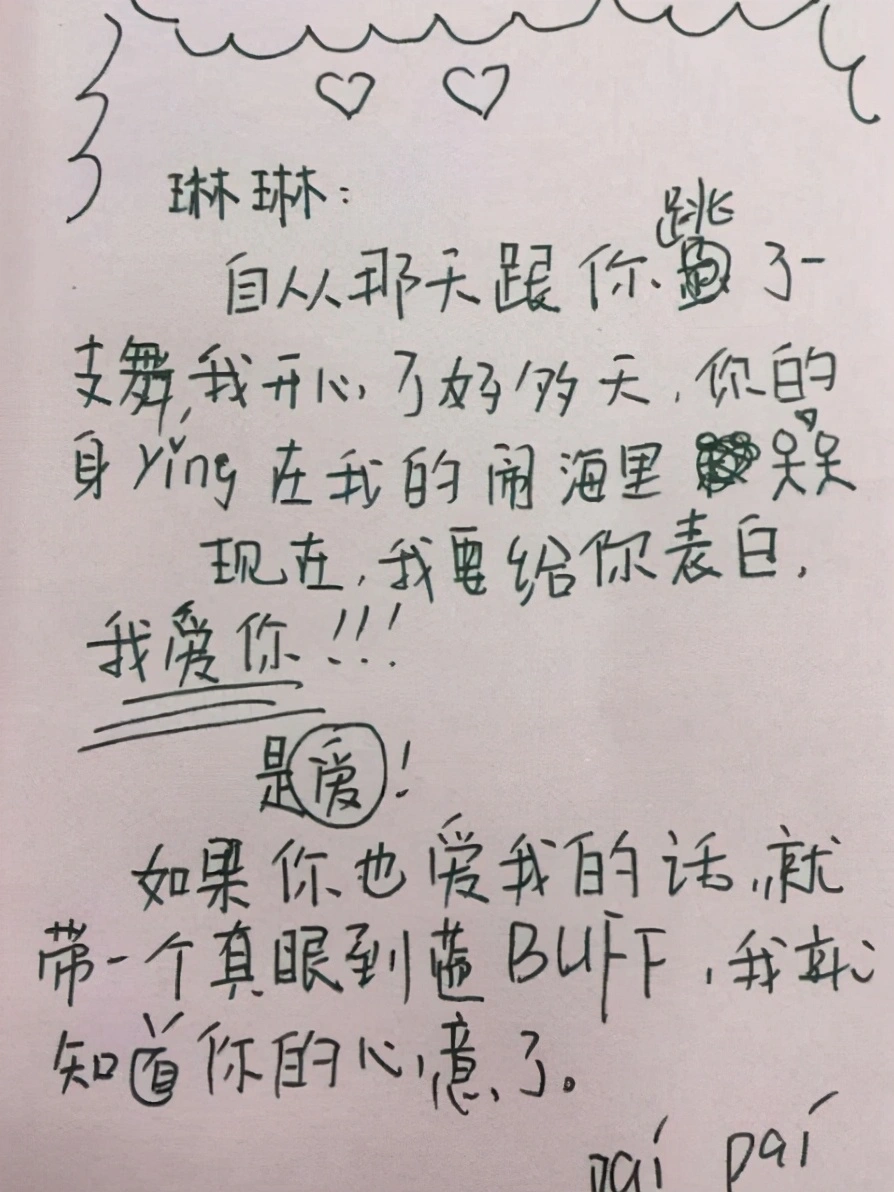 琳琳：
自从那天跟你跳了一
支舞,我开心了好多天,你的
身yǐng在我的闹海里呆呆
现在,我要给你表白,
我爱你!!!
是爱!
如果你也爱我的话,就
带一个真眼到蓝BUFF,我就
知道你的心意了。
pái pái